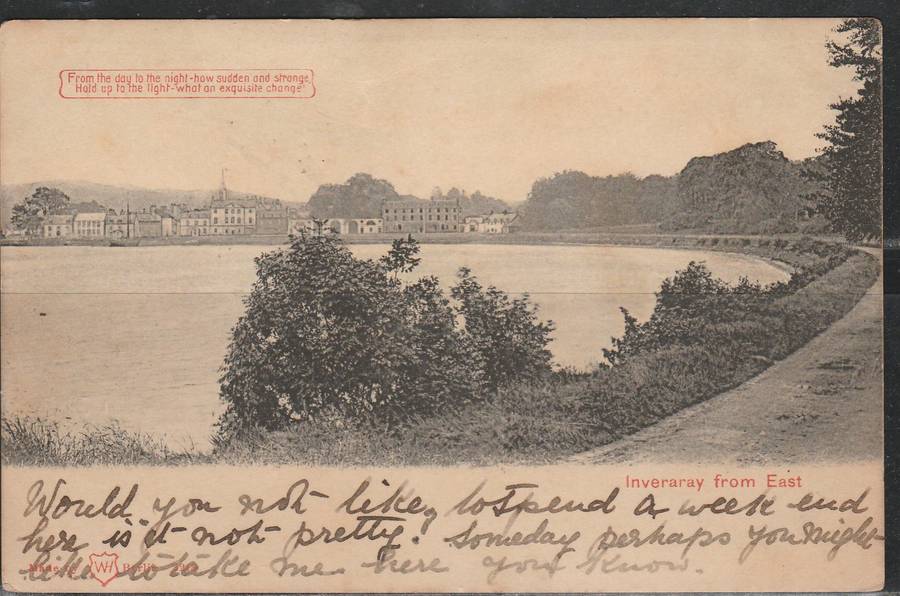 From the day to the night-how sudden and strange
Hold up to the light-what an exquisite change
Inveraray from East
Would you not like, to spend a week end
here is it not pretty? Someday perhaps you might
like to take me here you know.
Made in WH Berlin